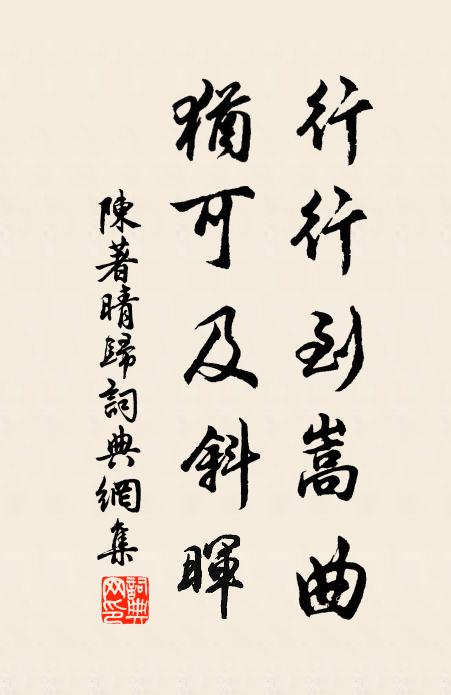 行行到嵩曲
猶可及斜暉
陳著晴歸詞典網集
詞典网印